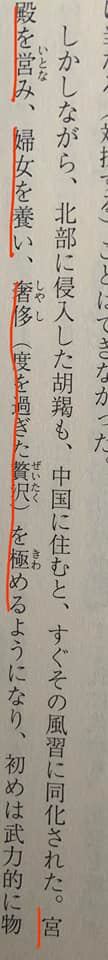 しかしながら、北部に侵入した胡羯も、中国に住むと、すぐその風習に同化された。宮
殿を営み、婦女を養い、奢侈（度を過ぎた贅沢）を極めるようになり、初めは武力的に物